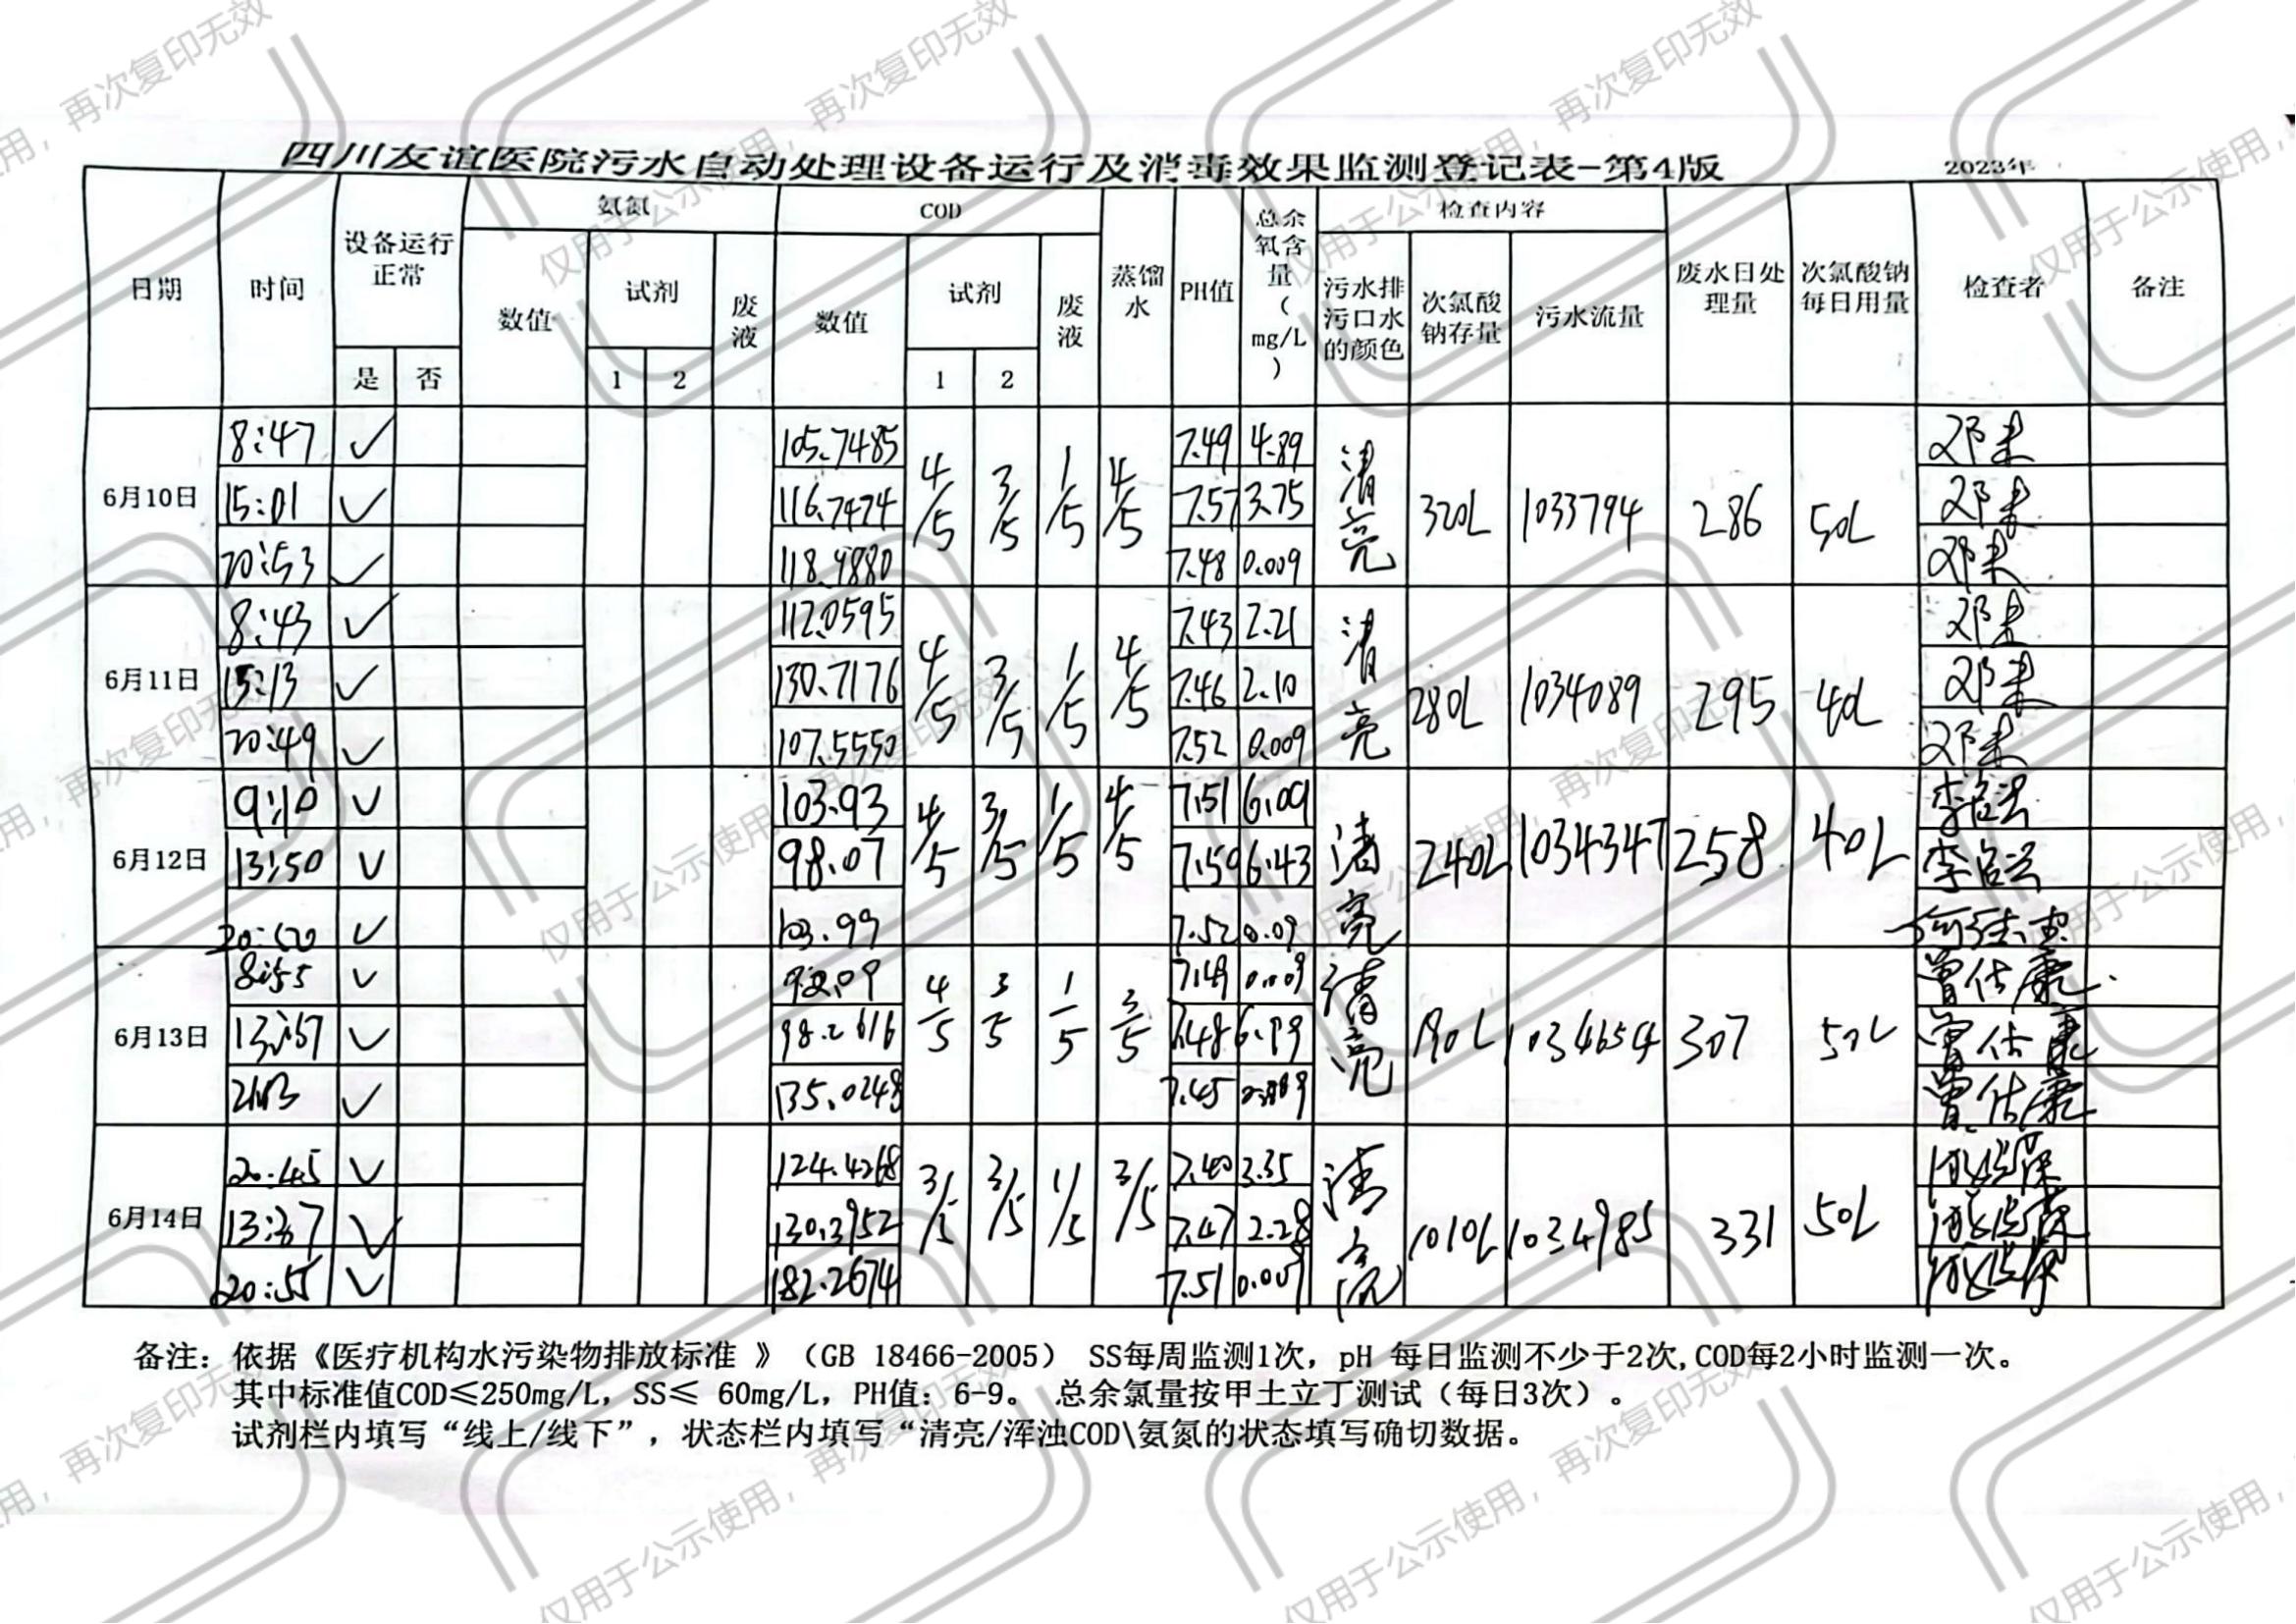 四川友谊医院污水自动处理设备运行及消毒效果监测登记表-第4版 2023年
日期 时间 设备运行正常 是 否 氨氮 数值 试剂 1 2 废液 COD 数值 试剂 1 2 废液 蒸馏水 PH值 总余氧含量(mg/L) 检查内容 污水排污口水的颜色 次氯酸钠存量 污水流量 废水日处理量 次氯酸钠每日用量 检查者 备注
6月10日 4/5 3/5 1/5 4/5 清亮 320L 1033794 286 50L
8:47 ✓ 105.7485 7.49 4.89
15:01 ✓ 116.7474 7.57 3.75
20:53 ✓ 118.4880 7.48 0.009
6月11日 4/5 3/5 1/5 4/5 清亮 280L 1034089 295 40L
8:43 ✓ 112.0595 7.43 2.21
15:13 ✓ 130.7176 7.46 2.10
20:49 ✓ 107.5550 7.52 0.009
6月12日 4/5 3/5 1/5 4/5 清亮 240L 1034347 258 40L
9:10 ✓ 103.93 7.51 6.09
13:50 ✓ 98.07 7.50 6.43
20:50 ✓ 103.99 7.52 0.09
6月13日 4/5 3/5 1/5 3/5 清亮 190L 1034654 307 50L
8:55 ✓ 7.49 0.009 曾仕康
13:57 ✓ 98.2616 7.48 6.99 曾仕康
✓ 135.0248 7.45 曾仕康
6月14日 3/5 3/5 1/5 3/5 清亮 1010L 1034985 331 50L
20:45 ✓ 124.4268 7.40 3.35
13:37 ✓ 130.3952 7.47 2.28
20:55 ✓ 182.2674 7.51 0.009
备注：依据《医疗机构水污染物排放标准 》（GB 18466-2005） SS每周监测1次，pH 每日监测不少于2次,COD每2小时监测一次。
其中标准值COD≤250mg/L，SS≤ 60mg/L，PH值：6-9。 总余氯量按甲土立丁测试（每日3次）。
试剂栏内填写“线上/线下”，状态栏内填写“清亮/浑浊COD\氨氮的状态填写确切数据。
仅用于公示使用，再次复印无效